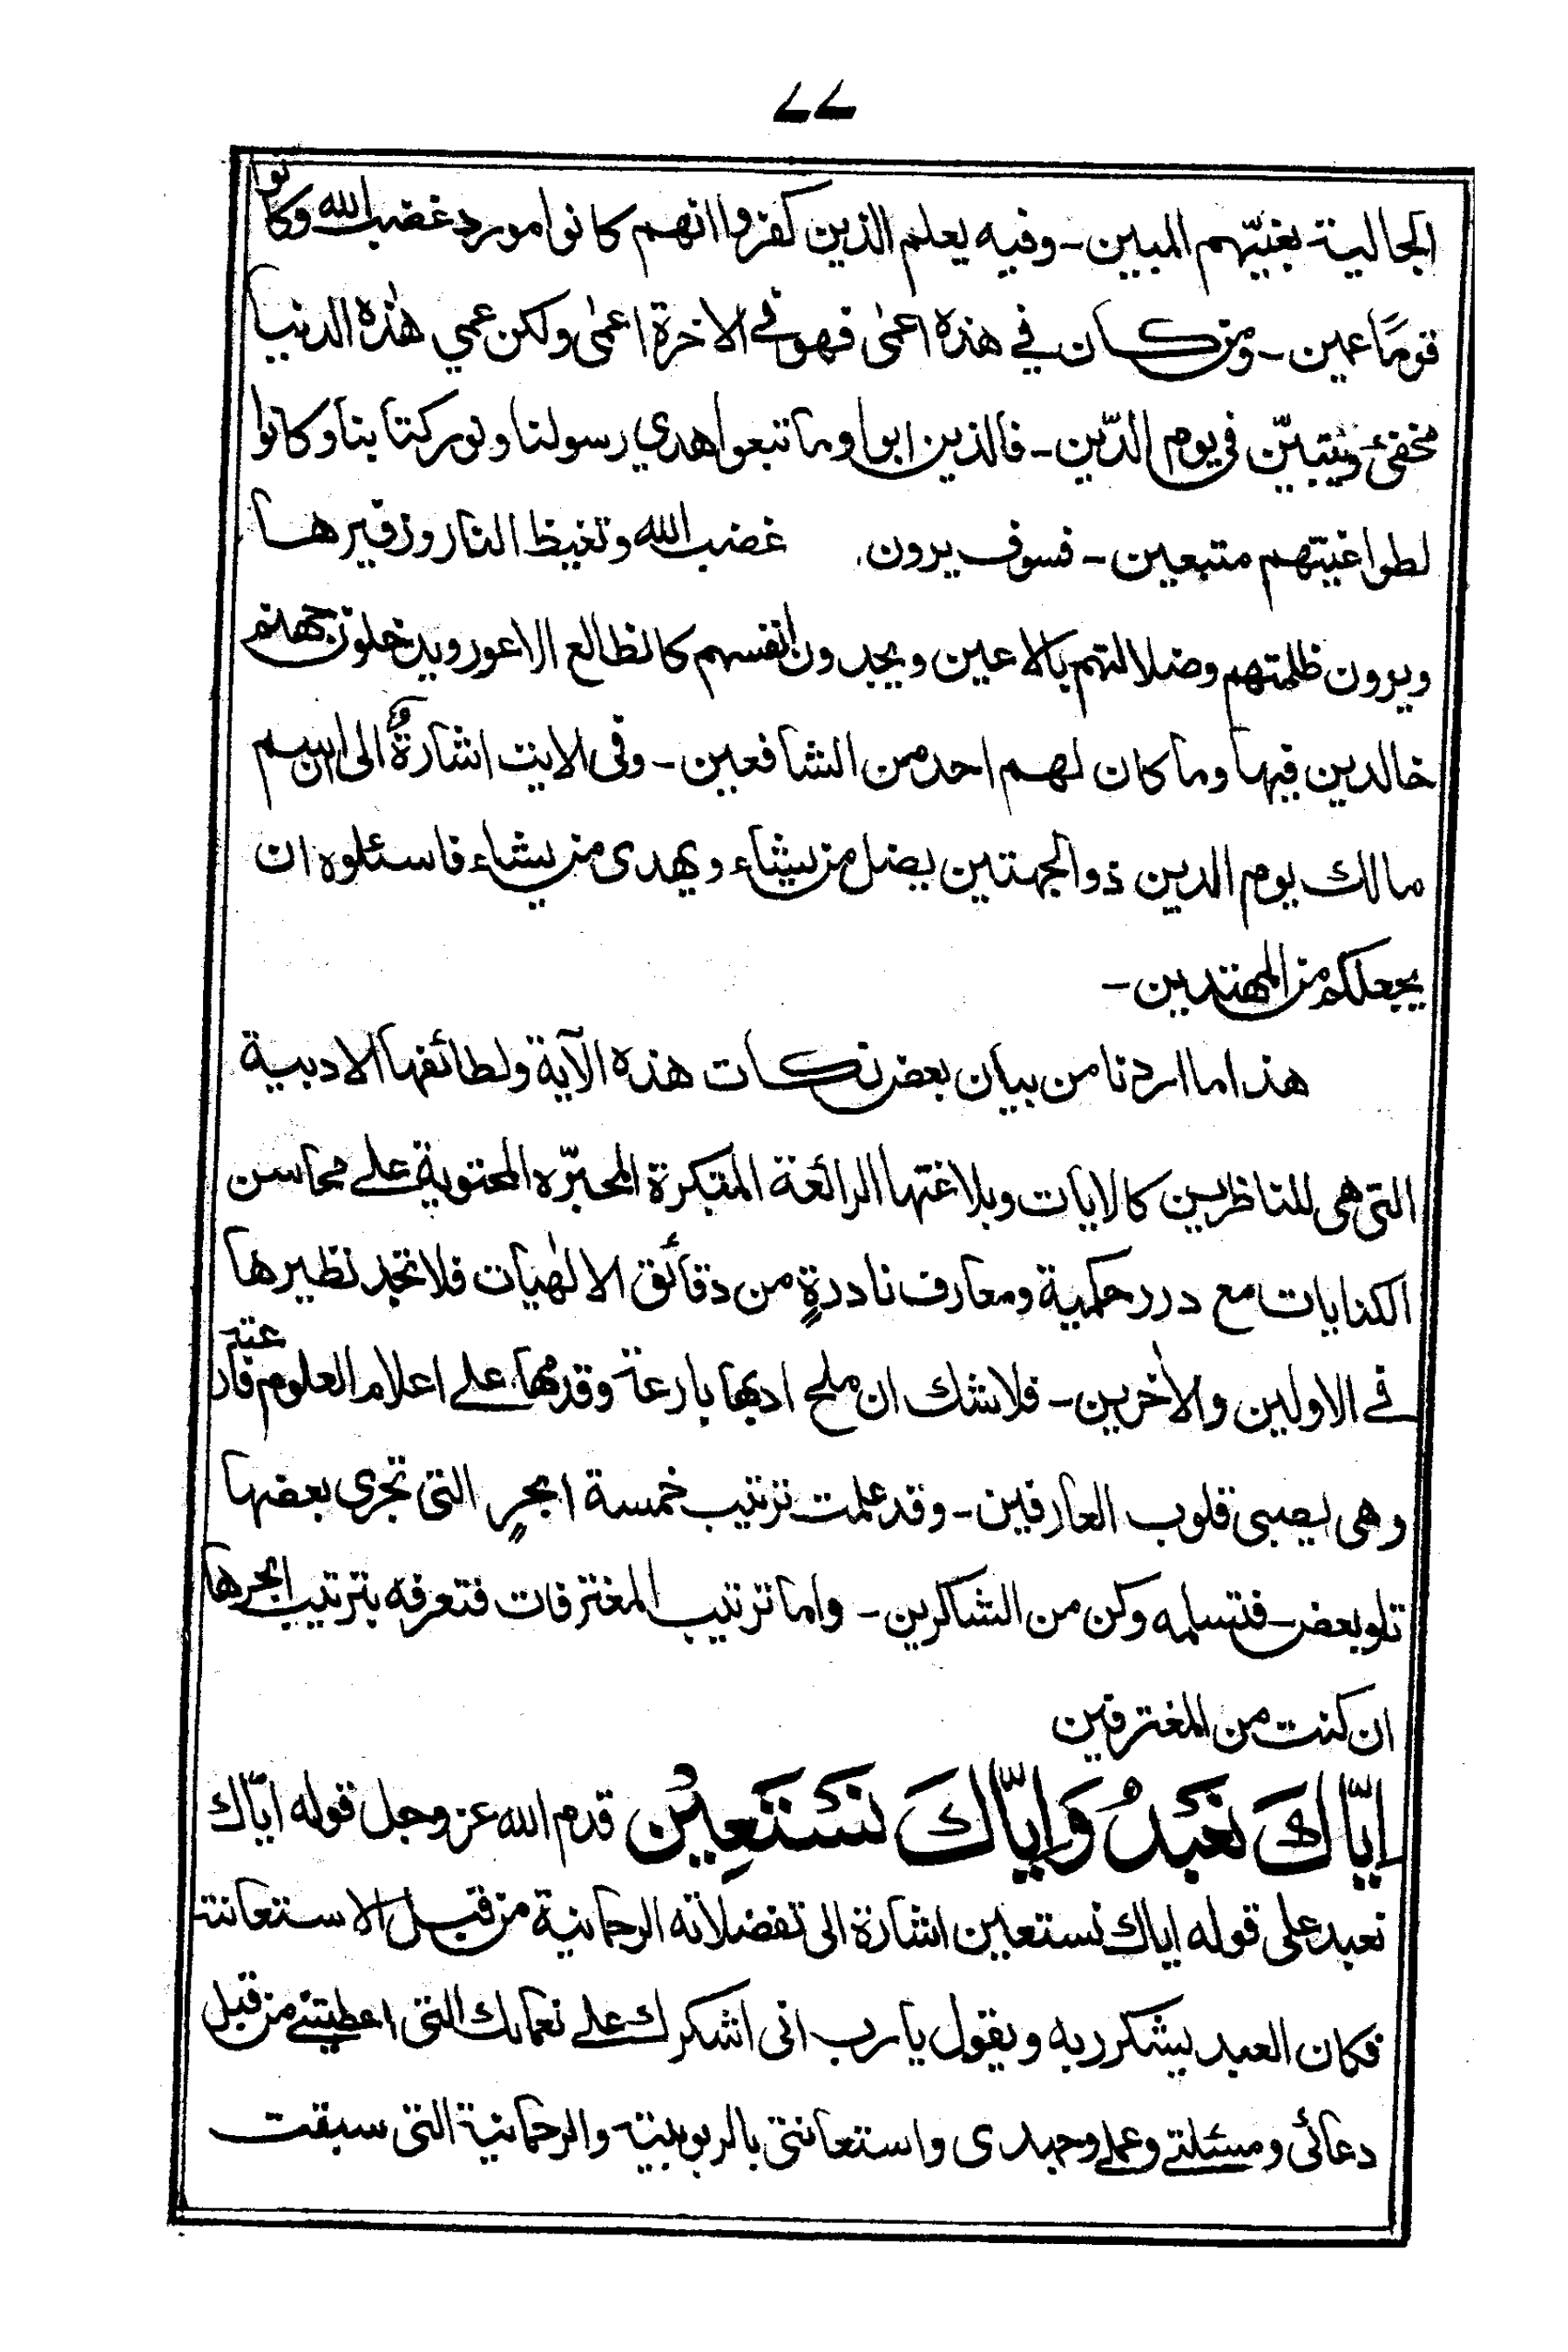 ٧٧
الجالية بغيّهم المبين - وفيه يعلم الذين كفروا انهم كانوا مورد غضب الله وكانوا
قومًا عمين - ومن كان في هذه اعمىٰ فهو في الاخرة اعمىٰ ولكن عمي هٰذه الدنيا
مخفيٌ ويتبيّن في يوم الدّين - فالذين ابوا وما تبعوا هدي رسولنا ونور كتابنا وكانوا
لطواغيتهم متبعين - فسوف يرون غضب الله وتغيظ النار وزفيرها
ويرون ظلمتهم وضلالتهم بالاعين ويجدون انفسهم كالظالع الاعور ويدخلون جهنم
خالدين فيها وما كان لهم احد من الشافعين - وفى الايت اشارةٌ الى ان اسم
مالك يوم الدين ذو الجهتين يضل من يشاء ويهدى من يشاء فاسئلوه ان
يجعلكم من المهتدين -
هذا ما اردنا من بيان بعض نكات هذه الآية ولطائفها الادبية
التى هى للناظرين كالايات وبلاغتها الرائعة المتبكرة المحبّره المحتوية على محاسن
الكنايات مع درر حكمية ومعارف نادرةٍ من دقائق الالٰهيات فلا تجد نظيرها
في الاولين والاٰخرين - فلا شك ان ملح ادبها بارعة وقدمها على اعلام العلوم فارعة
وهى يصبى قلوب العارفين - وقد علمت ترتيب خمسة ابحرٍ التى تجرى بعضها
تلو بعض فتسلمه وكن من الشاكرين - واما ترتيب المغترفات فتعرفه بترتيب ابحرها
ان كنت من المغترفين
اِيّاكَ نَعْبُدُ وَاِيّاكَ نَسْتَعِيْن قدم الله عز وجل قوله ايّاك
نعبد على قوله اياك نستعين اشارة الى تفضلاته الرحمانية من قبل الاستعانت
فكان العبد يشكر ربه ويقول يارب انى اشكرك على نعمائك التى اعطيتنى من قبل
دعائى ومسئلتي وعملي وجهدى واستعانتى بالربوبية والرحمانية التى سبقت